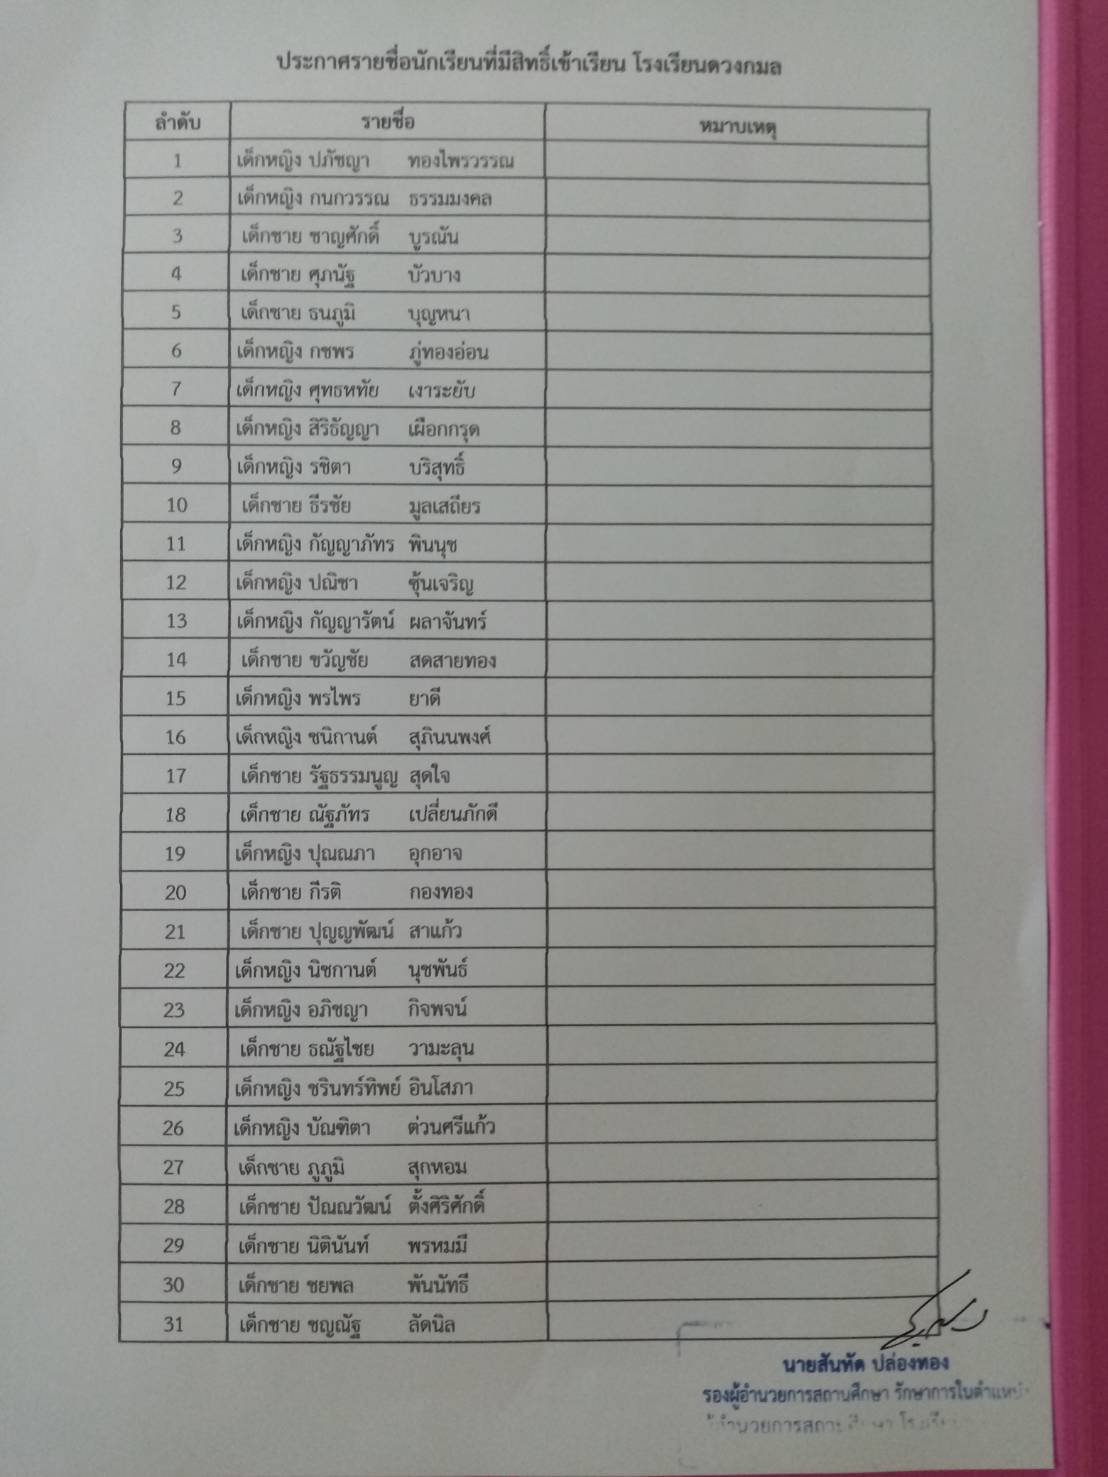 ประกาศรายชื่อนักเรียนที่มีสิทธิ์เข้าเรียน โรงเรียนดวงกมล
ลำดับ รายชื่อ หมายเหตุ
1 เด็กหญิง ปภัชญา ทองไพรวรรณ
2 เด็กหญิง กนกวรรณ ธรรมมงคล
3 เด็กชาย ชาญศักดิ์ บูรณัน
4 เด็กชาย ศุภนัฐ บัวบาง
5 เด็กชาย ธนภูมิ บุญหนา
6 เด็กหญิง กชพร ภู่ทองอ่อน
7 เด็กหญิง ศุทธหทัย เงาระยับ
8 เด็กหญิง สิริธัญญา เผือกกรุด
9 เด็กหญิง รชิตา บริสุทธิ์
10 เด็กชาย ธีรชัย มูลเสถียร
11 เด็กหญิง กัญญาภัทร พินนุช
12 เด็กหญิง ปณิชา ซุ้นเจริญ
13 เด็กหญิง กัญญารัตน์ ผลาจันทร์
14 เด็กชาย ขวัญชัย สดสายทอง
15 เด็กหญิง พรไพร ยาดี
16 เด็กหญิง ชนิกานต์ สุภินนพงศ์
17 เด็กชาย รัฐธรรมนูญ สุดใจ
18 เด็กชาย ณัฐภัทร เปลี่ยนภักดี
19 เด็กหญิง ปุณณภา อุกอาจ
20 เด็กชาย กีรติ กองทอง
21 เด็กชาย ปุญญพัฒน์ สาแก้ว
22 เด็กหญิง นิชกานต์ นุชพันธ์
23 เด็กหญิง อภิชญา กิจพจน์
24 เด็กชาย ธณัฐไชย วามะลุน
25 เด็กหญิง ชรินทร์ทิพย์ อินโสภา
26 เด็กหญิง บัณฑิตา ต่วนศรีแก้ว
27 เด็กชาย ภูภูมิ สุกหอม
28 เด็กชาย ปัณณวัฒน์ ตั้งศิริศักดิ์
29 เด็กชาย นิตินันท์ พรหมมี
30 เด็กชาย ชยพล พันนัทธี
31 เด็กชาย ชญณัฐ ลัดนิล
นายสันทัด ปล่องทอง
รองผู้อำนวยการสถานศึกษา รักษาการในตำแหน่ง
ผู้อำนวยการสถานศึกษา